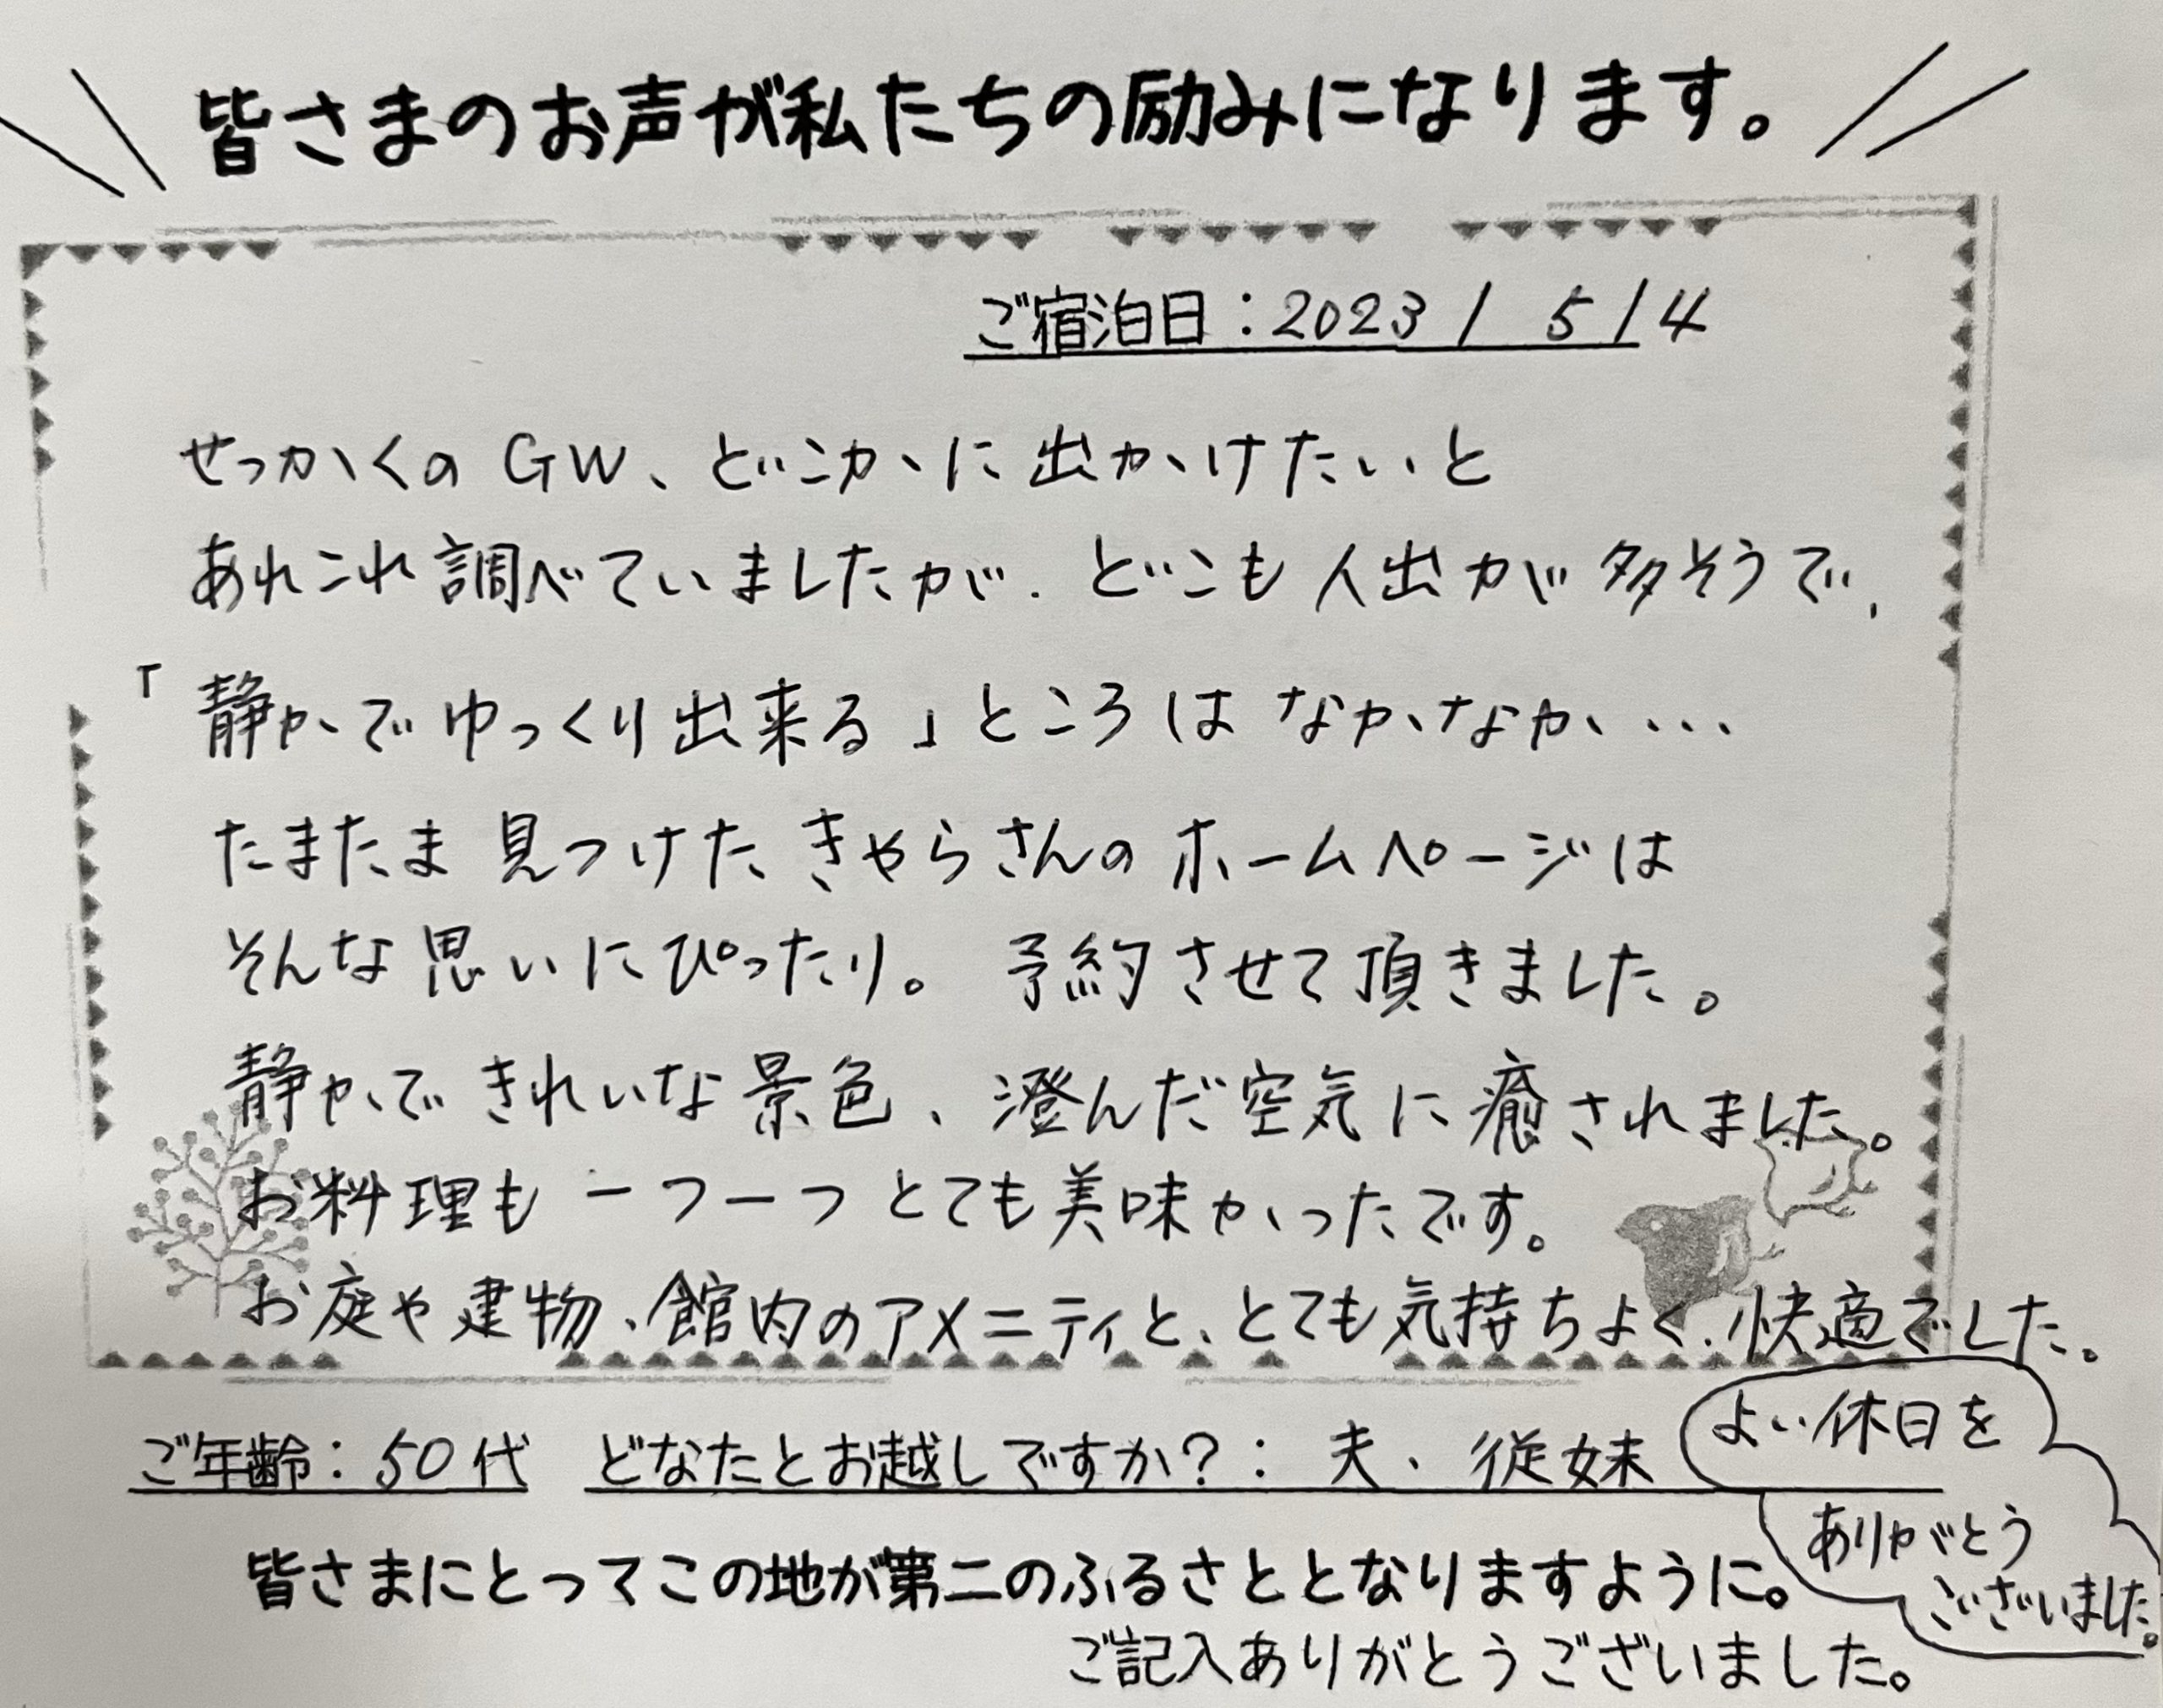 皆さまのお声が私たちの励みになります。
ご宿泊日：2023 / 5 / 4
せっかくのGW、どこかに出かけたいと
あれこれ調べていましたが、どこも人出が多そうで、
「静かでゆっくり出来る」ところはなかなか、・・・
たまたま見つけたきゃらさんのホームページは
そんな思いにぴったり。予約させて頂きました。
静かできれいな景色、澄んだ空気に癒されました。
お料理も一つ一つとても美味かったです。
お庭や建物、館内のアメニティと、とても気持ちよく、快適でした。
ご年齢：50代 どなたとお越しですか？：夫、従妹
よい休日を
ありがとう
ございました。
皆さまにとってこの地が第二のふるさととなりますように。
ご記入ありがとうございました。